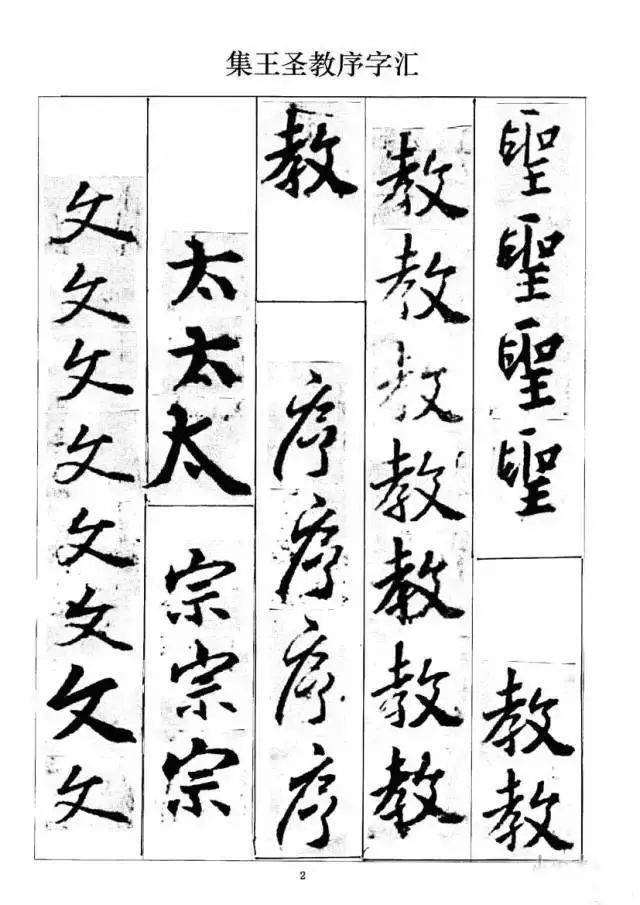 集王圣教序字汇
聖聖聖聖
教教
教教教教教教教
教
序序序序
太太太
宗宗宗
文文文文文文文文
2